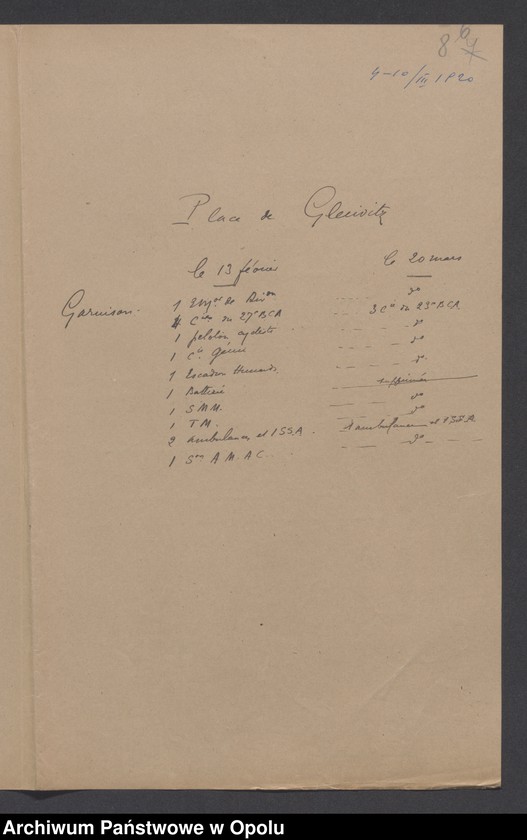 8
4-10/III 1920
Place de Gleiwitz
le 13 février le 20 mars
Garnison. 1 E.M. de Don do
4 Cies du 27e BCA 3 Cie du 23e BCA
1 peloton cycliste do
1 Cie génie do
1 Escadron Hussards do
1 Batterie supprimée
1 S M M. do
1 T M. do
2 Ambulances et 1 SSA. 1 ambulance et 1 SSA
1 Son A M. A C. do
Archiwum Państwowe w Opolu